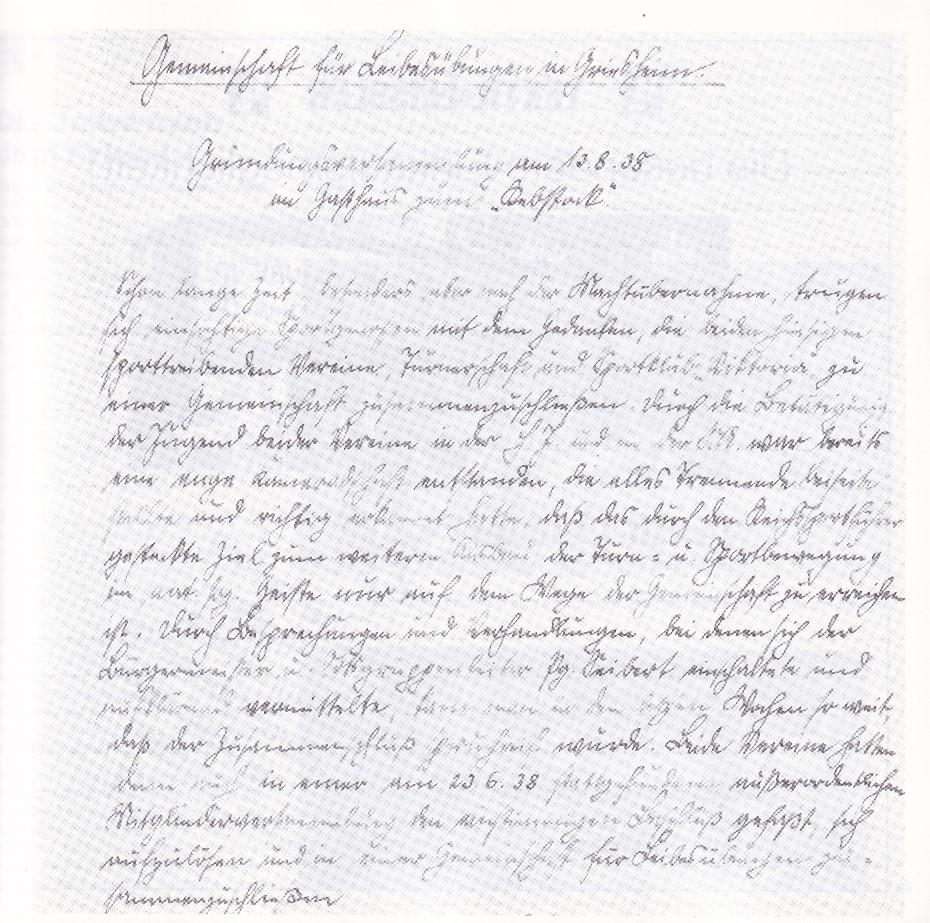 Gemeinschaft für Leibesübungen in Griesheim.
Gründungsversammlung am 13.8.38
im Gasthaus zum „Rebstock“.
Schon lange Zeit, besonders aber nach der Machtübernahme, trugen
sich einsichtige Sportgenossen mit dem Gedanken, die beiden hiesigen
sporttreibenden Vereine, Turnerschaft und Sportklub „Viktoria“ zu
einer Gemeinschaft zusammenzuschließen. Durch die Betätigung
der Jugend beider Vereine in der H.J. und in der S.A. war bereits
eine enge Kameradschaft entstanden, die alles Trennende beiseite
stellte und richtig erkannt hatte, daß das durch den Reichssportführer
gesteckte Ziel zum weiteren Ausbau der Turn- u. Sportbewegung
im nat. soz. Geiste nur auf dem Wege der Gemeinschaft zu erreichen
ist. Durch Besprechungen und Verhandlungen, bei denen sich der
Bürgermeister u. Ortsgruppenleiter Pg. Seibert einschaltete und
aufklärend vermittelte, kam man in den letzten Wochen so weit,
daß der Zusammenschluß spruchreif wurde. Beide Vereine hatten
denn auch in einer am 23.6.38 stattgefundenen außerordentlichen
Mitgliederversammlung den einstimmigen Beschluß gefaßt, sich
aufzulösen und in einer Gemeinschaft für Leibesübungen zu-
sammenzuschließen